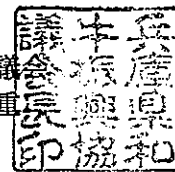 兵庫県和
牛振興協
議会長印